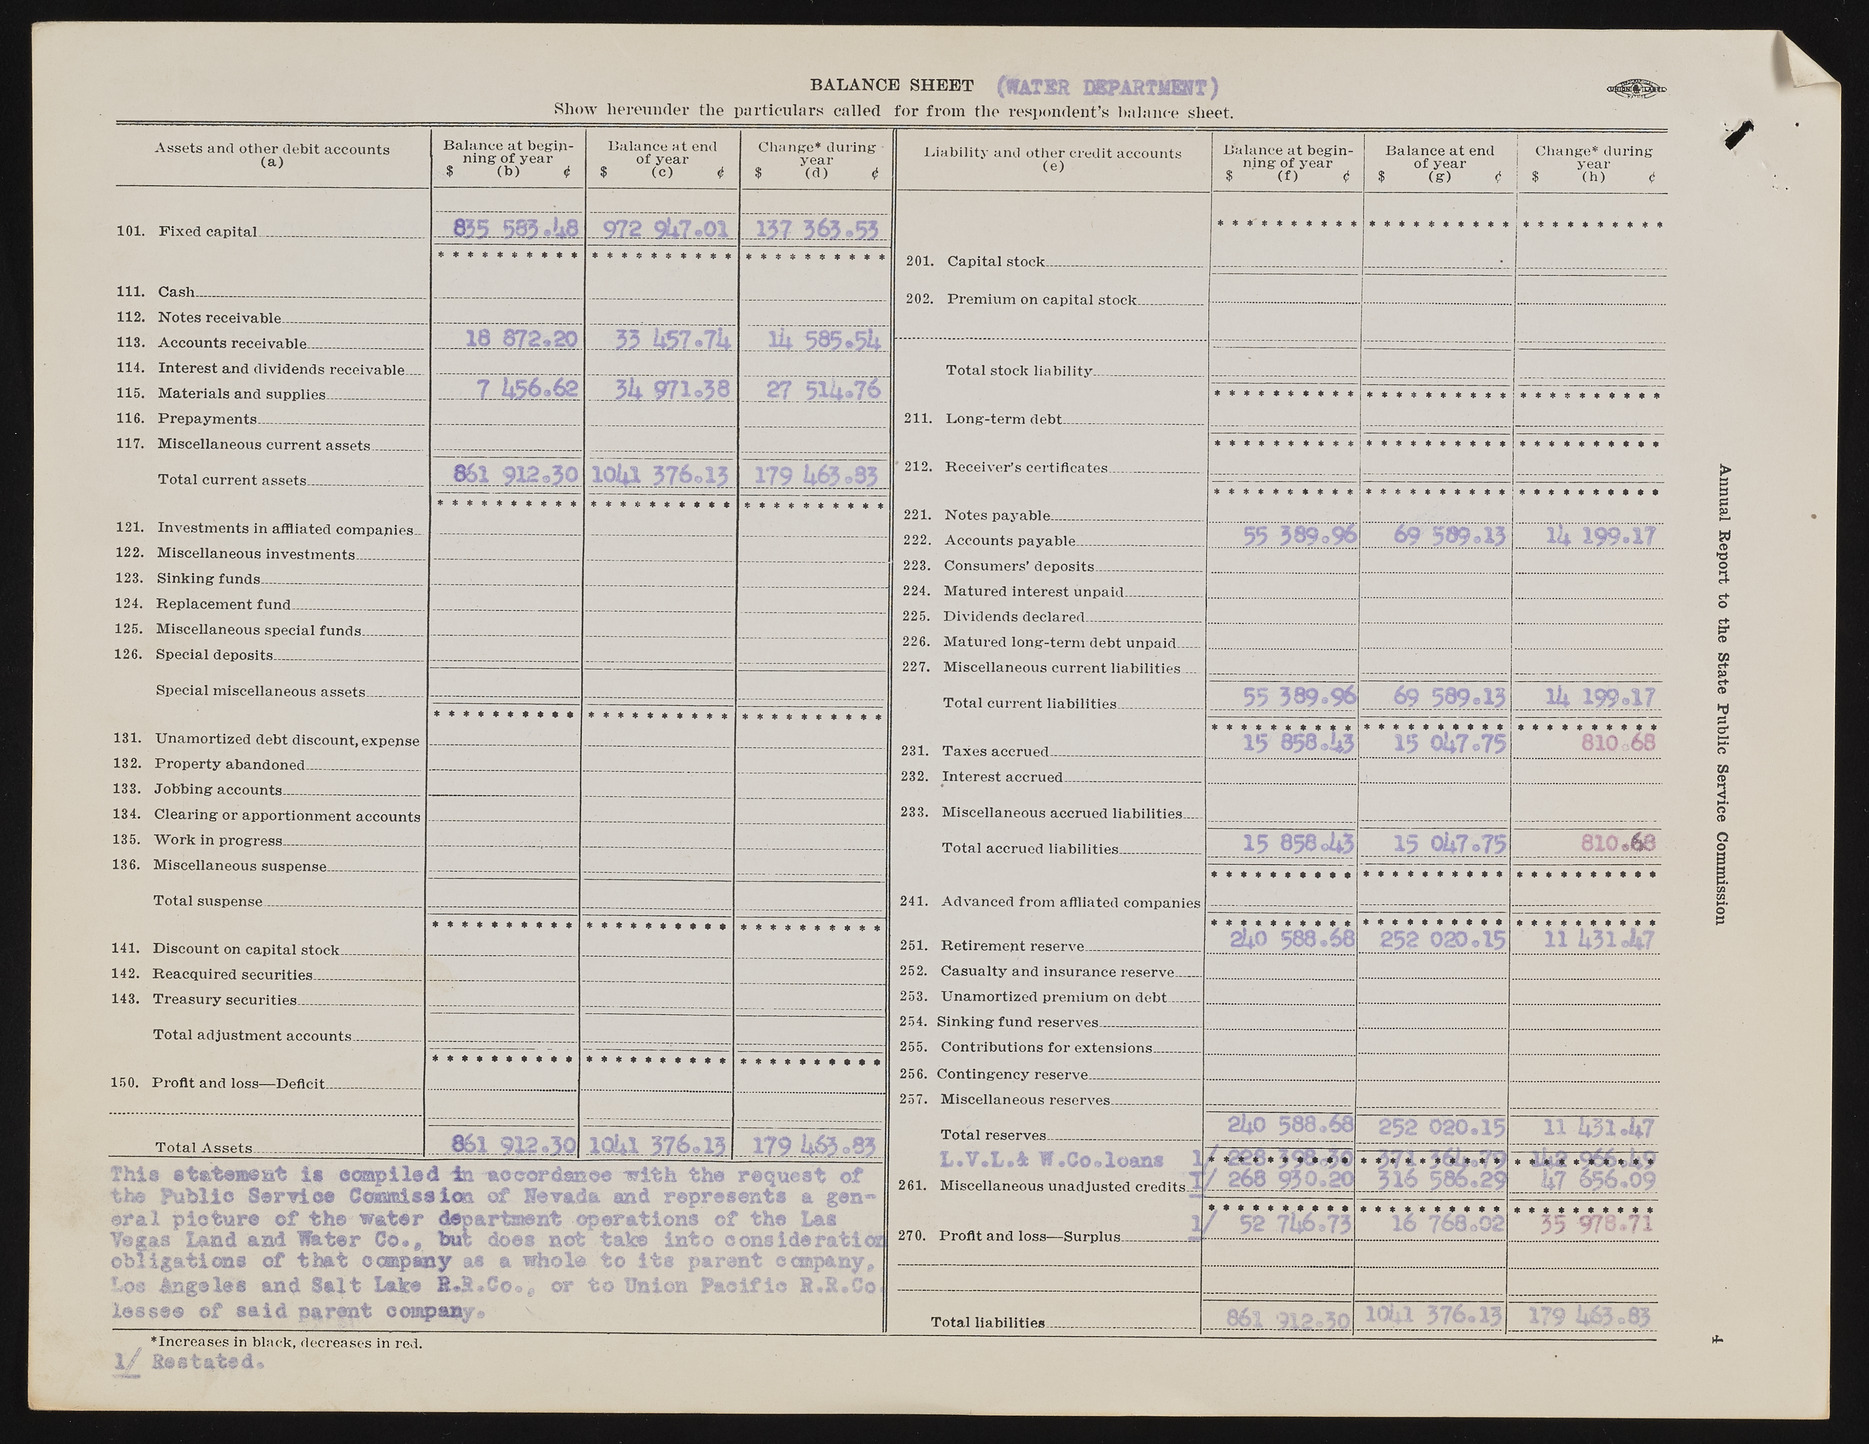 BALANCE SHEET (WATER DEPARTMENT)
Show hereunder the particulars called for from the respondent's balance sheet.
UNION LABEL
Assets and other debit accounts (a) | Balance at beginning of year $ (b) ¢ | Balance at end of year $ (c) ¢ | Change* during year $ (d) ¢
101. Fixed capital 835 583.48 972 947.01 137 363.53
* * * * * * * * * * * * * * * * * * * * * * * * * * * * * *
111. Cash
112. Notes receivable
113. Accounts receivable 18 872.20 33 457.74 14 585.54
114. Interest and dividends receivable
115. Materials and supplies 7 456.62 34 971.38 27 514.76
116. Prepayments
117. Miscellaneous current assets
Total current assets 861 912.30 1041 376.13 179 463.83
* * * * * * * * * * * * * * * * * * * * * * * * * * * * * *
121. Investments in affliated companies
122. Miscellaneous investments
123. Sinking funds
124. Replacement fund
125. Miscellaneous special funds
126. Special deposits
Special miscellaneous assets
* * * * * * * * * * * * * * * * * * * * * * * * * * * * * *
131. Unamortized debt discount, expense
132. Property abandoned
133. Jobbing accounts
134. Clearing or apportionment accounts
135. Work in progress
136. Miscellaneous suspense
Total suspense
* * * * * * * * * * * * * * * * * * * * * * * * * * * * * *
141. Discount on capital stock
142. Reacquired securities
143. Treasury securities
Total adjustment accounts
* * * * * * * * * * * * * * * * * * * * * * * * * * * * * *
150. Profit and loss—Deficit
Total Assets 861 912.30 1041 376.13 179 463.83
This statement is compiled in accordance with the request of
the Public Service Commission of Nevada and represents a gen-
eral picture of the water department operations of the Las
Vegas Land and Water Co., but does not take into consideration
obligations of that company as a whole to its parent company,
Los Angeles and Salt Lake R.R.Co., or to Union Pacific R.R.Co.
lessee of said parent company.
*Increases in black, decreases in red.
1/ Restated.
Liability and other credit accounts (e) | Balance at beginning of year $ (f) ¢ | Balance at end of year $ (g) ¢ | Change* during year $ (h) ¢
* * * * * * * * * * * * * * * * * * * * * * * * * * * * * *
201. Capital stock
202. Premium on capital stock
Total stock liability
* * * * * * * * * * * * * * * * * * * * * * * * * * * * * *
211. Long-term debt
* * * * * * * * * * * * * * * * * * * * * * * * * * * * * *
212. Receiver's certificates
* * * * * * * * * * * * * * * * * * * * * * * * * * * * * *
221. Notes payable
222. Accounts payable 55 389.96 69 589.13 14 199.17
223. Consumers' deposits
224. Matured interest unpaid
225. Dividends declared
226. Matured long-term debt unpaid
227. Miscellaneous current liabilities
Total current liabilities 55 389.96 69 589.13 14 199.17
* * * * * * * * * * * * * * * * * * * * * * * * * * * * * *
231. Taxes accrued 15 858.43 15 047.75 810.68
232. Interest accrued
233. Miscellaneous accrued liabilities
Total accrued liabilities 15 858.43 15 047.75 810.68
* * * * * * * * * * * * * * * * * * * * * * * * * * * * * *
241. Advanced from affliated companies
* * * * * * * * * * * * * * * * * * * * * * * * * * * * * *
251. Retirement reserve 240 588.68 252 020.15 11 431.47
252. Casualty and insurance reserve
253. Unamortized premium on debt
254. Sinking fund reserves
255. Contributions for extensions
256. Contingency reserve
257. Miscellaneous reserves
Total reserves 240 588.68 252 020.15 11 431.47
L.V.L.& W.Co.loans 1/ 228 398.30 371 364.79 142 966.49
261. Miscellaneous unadjusted credits 1/ 268 930.20 316 586.29 47 656.09
* * * * * * * * * * * * * * * * * * * * * * * * * * * * * *
270. Profit and loss—Surplus 1/ 52 746.73 16 768.02 35 978.71
Total liabilities 861 912.30 1041 376.13 179 463.83
Annual Report to the State Public Service Commission
4